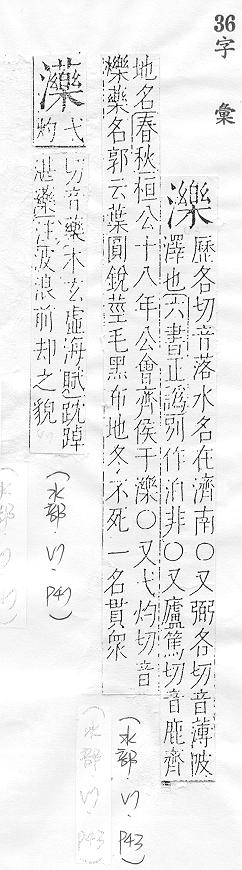 36字彙
濼 歷各切音落水名在濟南〇又弼各切音薄陂
澤也六書正譌別作泊非〇又廬篤切音鹿齊
地名春秋桓公十八年公會齊侯于濼〇又弋灼切音
櫟藥名郭云葉圓銳莖毛黑布地冬不死一名貫衆
(水部·门·P43)
(水部·门·P43)
灪 弋灼
切音藥木玄虛海賦䟴踔
湛灪汪波浪前却之貌
(水部·门·P47)